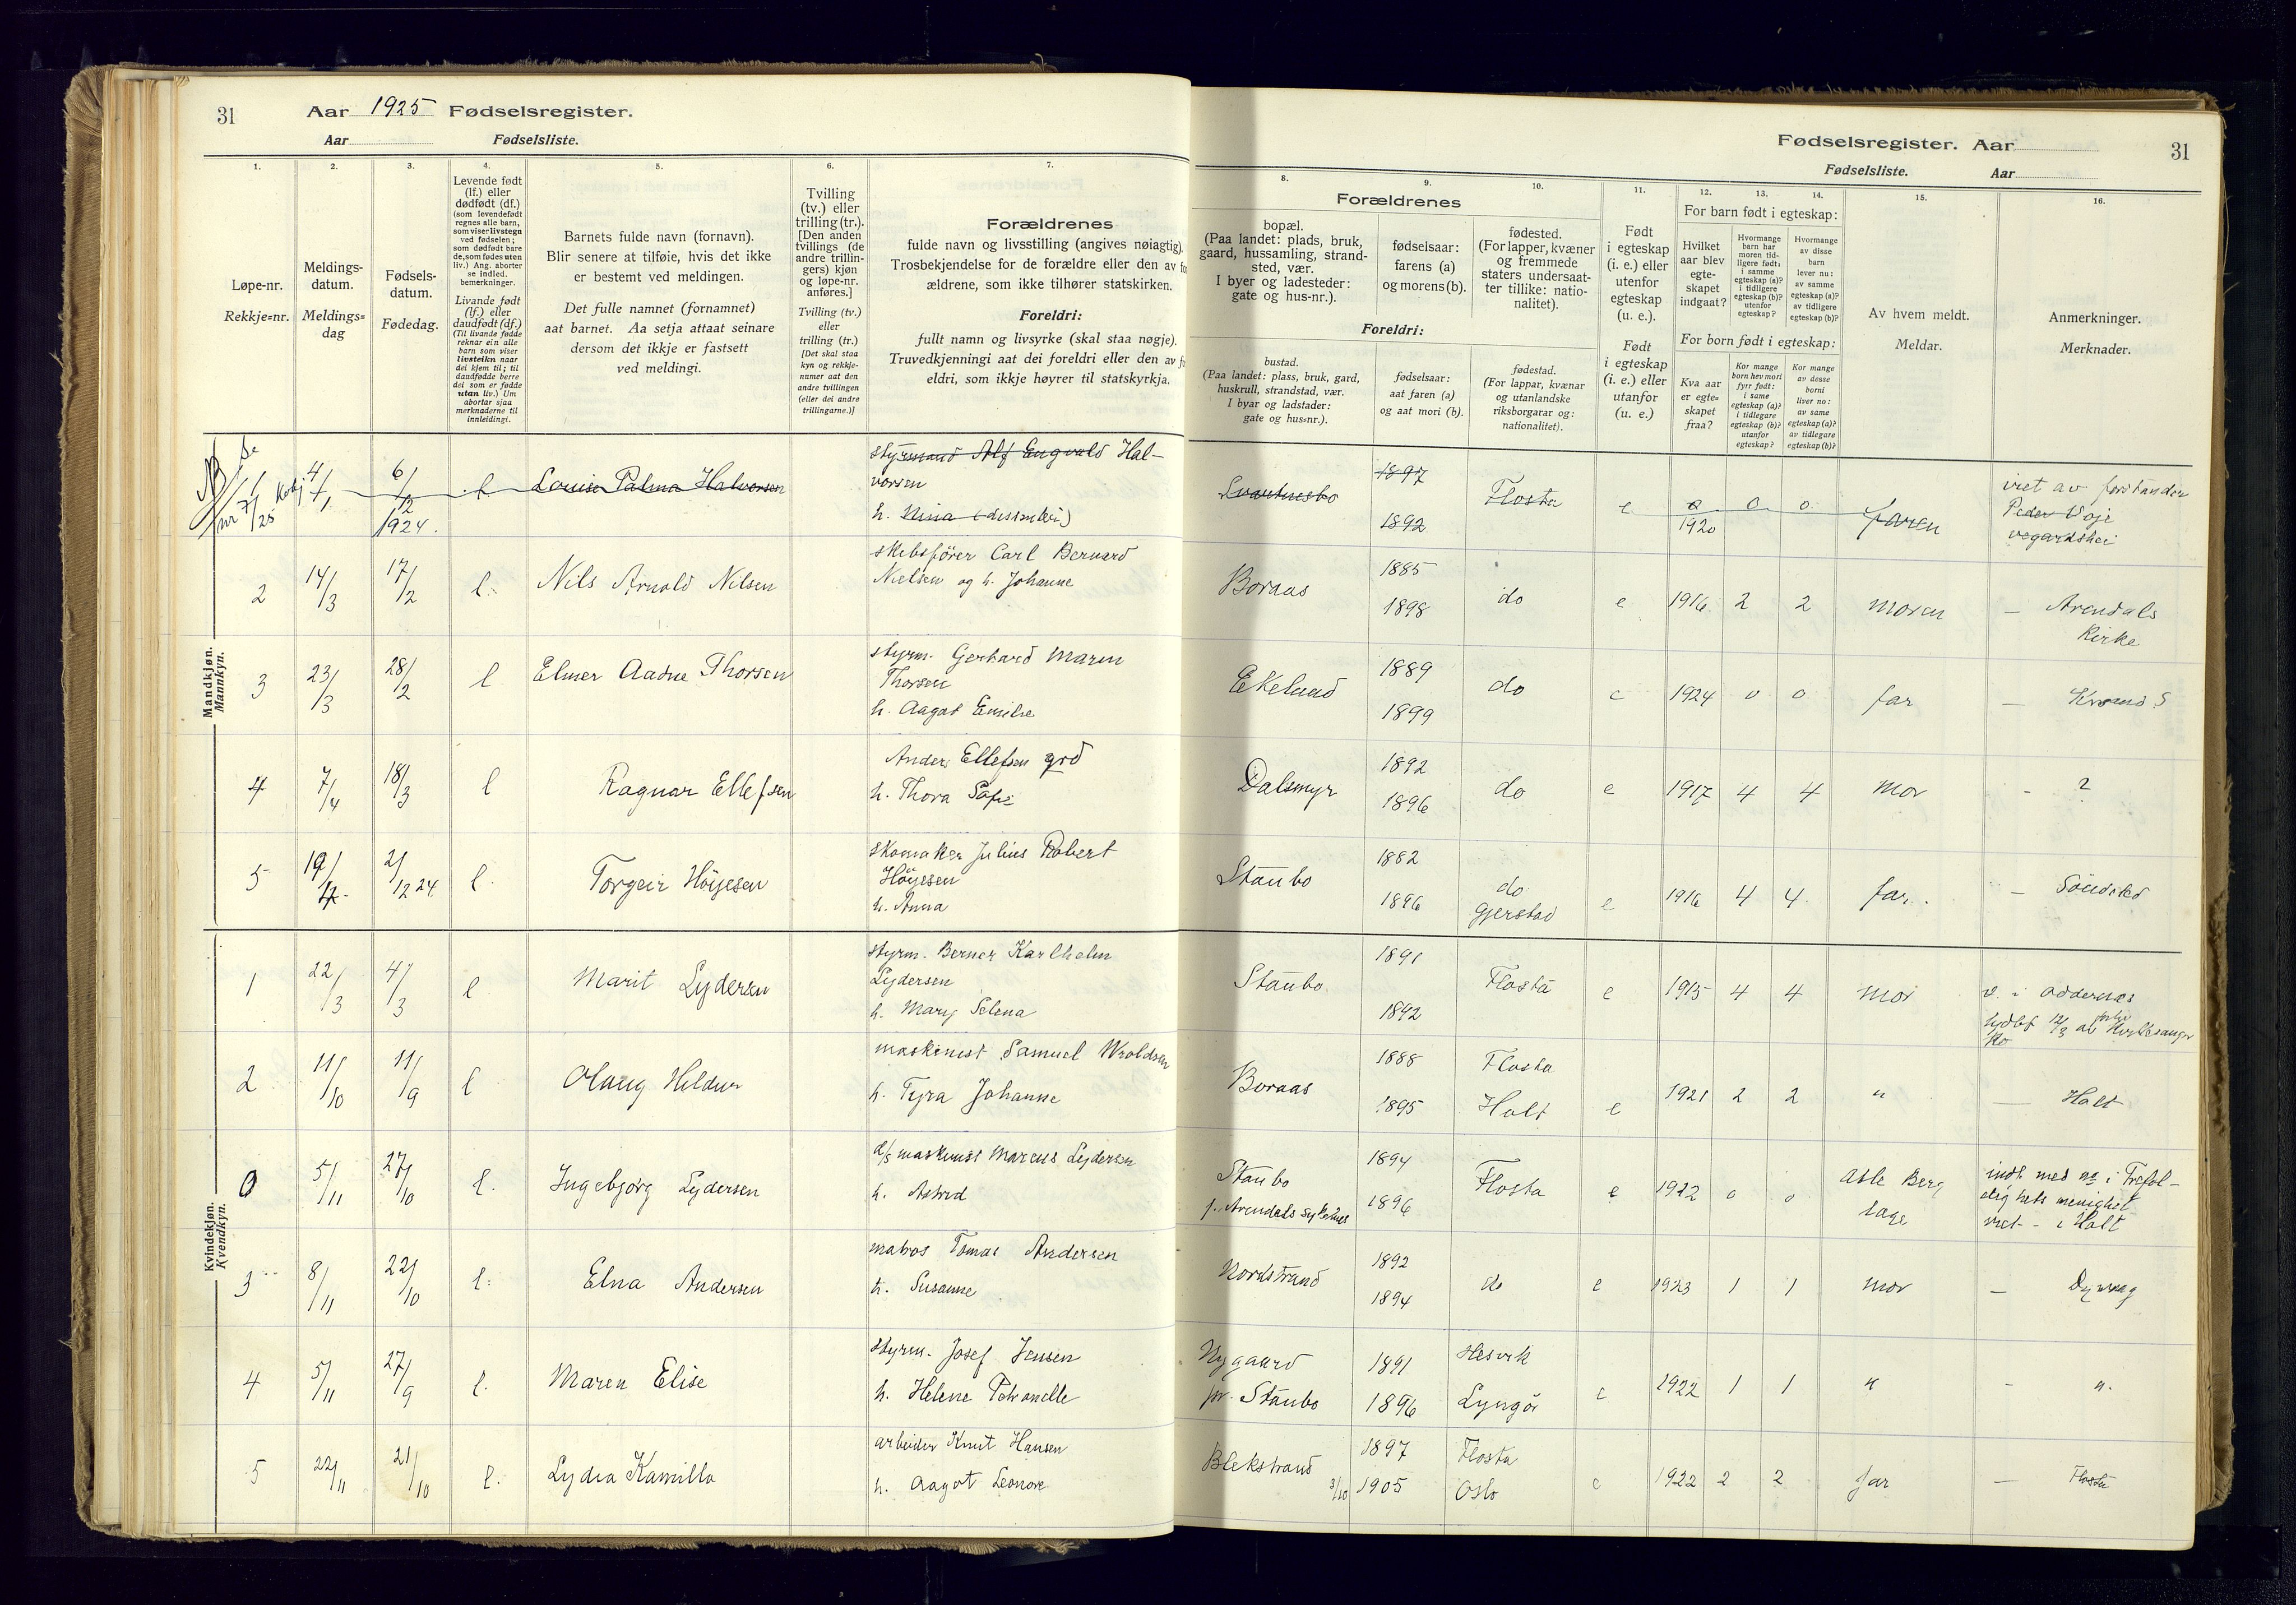 31
Aar 1925 Fødselsregister.
Aar Fødselsliste.
1. 2. 3. 4. 5. 6. 7.
Løpe-nr.
Rekkje-nr.
Meldings-
datum.
Meldings-
dag
Fødsels-
datum.
Fødedag.
Levende født
(lf.) eller
dødfødt (df.)
(som levendefødt
regnes alle barn,
som viser livstegn
ved fødselen;
som dødfødt bare
de, som fødes uten
liv.) Ang. aborter
se indled.
bemerkninger.
Livande født
(lf.) eller
daudfødt (df.)
(Til livande fødde
reknar ein alle
barn som viser
livsteikn naar
dei kjem til; til
daudfødde berre
dei som er fødde
utan liv.) Um
abortar sjaa
merknaderne til
innleidingi.
Barnets fulde navn (fornavn).
Blir senere at tilføie, hvis det ikke
er bestemt ved meldingen.
Det fulle namnet (fornamnet)
aat barnet. Aa setja attaat seinare
dersom det ikkje er fastsett
ved meldingi.
Tvilling
(tv.) eller
trilling (tr.).
[Den anden
tvillings (de
andre trillin-
gers) kjøn
og løpe-nr.
anføres.]
Tvilling (tv.)
eller
trilling (tr.)
[Det skal staa
kyn og rekkje-
numer aat den
andre tvillingen
(eller dei andre
trillingarne.)]
Forældrenes
fulde navn og livsstilling (angives nøiagtig).
Trosbekjendelse for de forældre eller den av
ældrene, som ikke tilhører statskirken.
Foreldri:
fullt namn og livsyrke (skal staa nøgje).
Truvedkjenningi aat dei foreldri eller den av
eldri, som ikkje høyrer til statskyrkja.
Mandkjøn.
Mannkyn.
4/1 6/12 1924. l Louise Palma Halvorsen
styrmand Alf Engvald Hal-
vorsen
h. Nina
2 14/3 17/2 l. Nils Arnold Nilsen
skibsfører Carl Bernard
Nielsen og h. Johanne
3 23/3 28/2 l Elmer Aadne Thorsen
styrm. Gerhard Maren
Thorsen
h. Aagot Emilie
4 7/4 18/3 l Ragnar Ellefsen
Anders Ellefsen grd
h. Thora Sofie
5 19/4 2/12 24 l. Torgeir Höyesen
skomaker Julius Robert
Höyesen
h. Anna
Kvindekjøn.
Kvendkyn.
1 22/3 4/3 l Marit Lydersen
styrm. Berner Karlholm
Lydersen
h. Mary Selena
2 11/10 11/9 l Olaug Heldur
maskinist Samuel Wroldsen
h. Tyra Johanne
0 5/11 27/10 l. Ingebjørg Lydersen
d/s maskinist Marcus Lydersen
h. Astrid
3 8/11 22/10 l. Elna Andersen
matros Tomas Andersen
h. Susanne
4 5/11 27/9 l. Maren Elise
styrm. Josef Jensen
h. Helene Petronelle
5 22/11 21/10 l. Lydia Kamilla
arbeider Knut Hansen
h. Aagot Leonore
Fødselsregister. Aar 31
Fødselsliste. Aar
8. 9. 10. 11. 12. 13. 14. 15. 16.
Forældrenes
bopæl.
(Paa landet: plads, bruk,
gaard, hussamling, strand-
sted, vær.
I byer og ladesteder:
gate og hus-nr.).
fødselsaar:
farens (a)
og morens (b).
fødested.
(For lapper, kvæner
og fremmede
staters undersaat-
ter tillike: natio-
nalitet).
Foreldri:
bustad.
(Paa landet: plass, bruk, gard,
huskrull, strandstad, vær.
I byar og ladstader:
gate og hus=nr.).
fødselsaar:
aat faren (a)
og aat mori (b).
fødestad.
(For lappar, kvænar
og utanlandske
riksborgarar og:
nationalitet).
Født
i egteskap
(i. e.) eller
utenfor
egteskap
(u. e.).
Født
i egteskap
(i. e.) eller
utanfor
(u. e.)
For barn født i egteskap:
Hvilket
aar blev
egte-
skapet
indgaat?
Hvormange
barn har
moren tid-
ligere født:
i samme
egteskap (a)?
i tidligere
egteskap (b)?
utenfor
egteskap?
Hvormange
av disse
barn
lever nu:
av samme
egteskap (a)?
av tidligere
egteskap (b)?
For born født i egteskap:
Kva aar
er egte-
skapet
fraa?
Kor mange
born hev mori
fyrr født:
i same
egteskap (a)?
i tidlegare
egteskap (b)?
utanfor
egteskap?
Kor mange
av desse
borni
liver no:
av same
egteskap (a)?
av tidlegare
egteskap (b)?
Av hvem meldt.
Meldar.
Anmerkninger.
Merknader.
1897 1892 Flosta e 1920 0 0 faren
viet av forstander
Peder Voje
vegardshei
Boraas 1885 1898 do e 1916 2 2 moren — Arendals
Kirke
Ekelund 1889 1899 do e 1924 0 0 far — Krsand S
Dalsmyr 1892 1896 do e 1917 4 4 mor - ?
Staubo 1882 1896 do
gjerstad e 1916 4 4. far. — Söndeled
Staubo 1891 1892 Flosta e 1915 4 4 mor
v. i Oddernes
Boraas 1888 1895 Flosta
Holt e 1921 2 2 " — Holt
Staubo
f. Arendals sykehus 1894 1896 Flosta e 1922 0 0 Asle Berg
lage
indt. med no i Trefol-
dighets menighet
viet - i Holt
Nordstrand 1892 1894 do e 1923 1 1 mor — Dypvag
Nygaard
pr. Staubo 1891 1896 Hesvik
Lyngör e 1922 1 1 " - ".
Blekstrand 1897 3/10 1905 Flosta
Oslo e 1922 2 2 far — Flosta